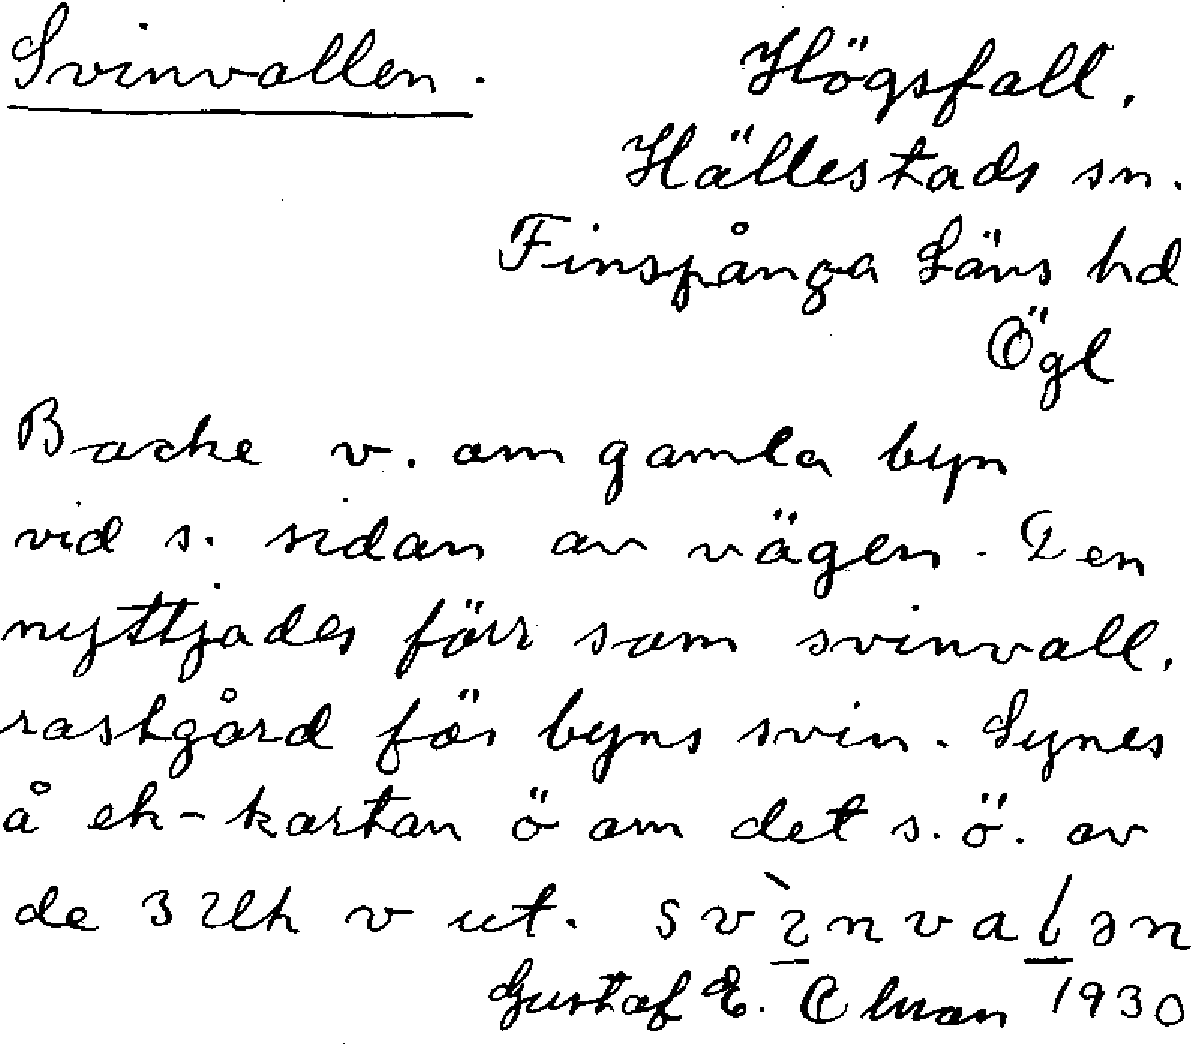 Svinvallen.
Högsfall,
Hällestads sn.
Finspånga Läns hd
Ögl
Backe v. om gamla byn
vid s. sidan av vägen. Den
nyttjades förr som svinvall,
rastgård för byns svin. Synes
å ek-kartan ö om det s.ö. av
de 3 v ut.
Gustaf E. 1930